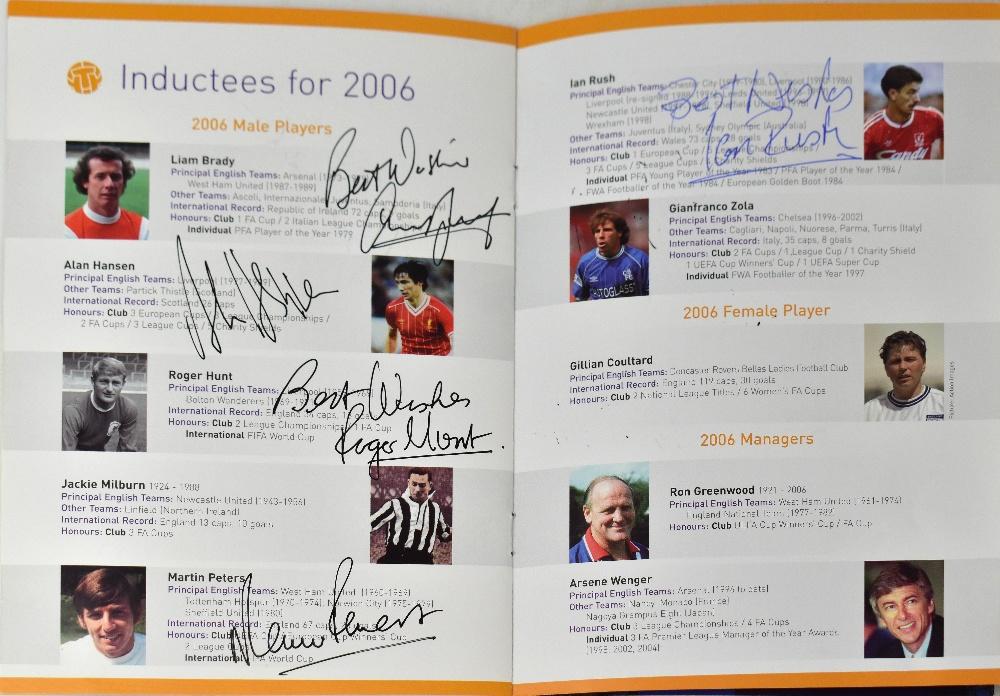 Inductees for 2006
2006 Male Players
Liam Brady
Principal English Teams: Arsenal
West Ham United (1987-1989)
Other Teams: Ascoli, Internazionale, Juventus, Sampdoria (Italy)
International Record: Republic of Ireland 72 caps, goals
Honours: Club 1 FA Cup / 2 Italian League Championships
Individual PFA Player of the Year 1979
Best Wishes
Alan Hansen
Principal English Teams: Liverpool
Other Teams: Partick Thistle (Scotland)
International Record: Scotland 26 caps
Honours: Club 3 European Cups / League Championships /
2 FA Cups / 3 League Cups / Charity Shields
Roger Hunt
Principal English Teams:
Bolton Wanderers
International Record: England 34 caps,
Honours: Club 2 League Championships / 1 FA Cup
International FIFA World Cup
Best Wishes
Roger Hunt
Jackie Milburn 1924 - 1988
Principal English Teams: Newcastle United (1943-1956)
Other Teams: Linfield (Northern Ireland)
International Record: England 13 caps, 10 goals
Honours: Club 3 FA Cups
Martin Peters
Principal English Teams: West Ham United (1960-1969)
Tottenham Hotspur (1970-1974), Norwich City
Sheffield United (1980)
International Record: England 67 caps
Honours: Club Winners' Cup
2 League Cups
International FIFA World Cup
Martin Peters
Ian Rush
Principal English Teams: Chester City Liverpool
Liverpool (re-signed Leeds United
Newcastle United Sheffield United
Wrexham (1998)
Other Teams: Juventus (Italy), Sydney Olympic (Australia)
International Record: Wales 73 caps, 28 goals
Honours: Club 1 European Cup / 5 League Championships /
3 FA Cups / 5 League Cups / Charity Shields
Individual PFA Young Player of the Year 1983 / PFA Player of the Year 1984 /
FWA Footballer of the Year 1984 / European Golden Boot 1984
Best Wishes
Ian Rush
Candy
Gianfranco Zola
Principal English Teams: Chelsea (1996-2002)
Other Teams: Cagliari, Napoli, Nuorese, Parma, Turris (Italy)
International Record: Italy, 35 caps, 8 goals
Honours: Club 2 FA Cups / 1 League Cup / 1 Charity Shield
1 UEFA Cup Winners' Cup / 1 UEFA Super Cup
Individual FWA Footballer of the Year 1997
2006 Female Player
Gillian Coultard
Principal English Teams: Doncaster Rovers Belles Ladies Football Club
International Record: England 119 caps, 30 goals
Honours: Club 2 National League Titles / 6 Women's FA Cups
2006 Managers
Ron Greenwood 1921 - 2006
Principal English Teams: West Ham United (1961-1974)
England National Team (1977-1982)
Honours: Club UEFA Cup Winners' Cup / FA Cup
Arsene Wenger
Principal English Teams: Arsenal (1996 to date)
Other Teams: Nancy, Monaco (France)
Nagoya Grampus Eight (Japan)
Honours: Club 3 League Championships / 4 FA Cups
Individual 3 FA Premier League Manager of the Year Awards
(1998, 2002, 2004)